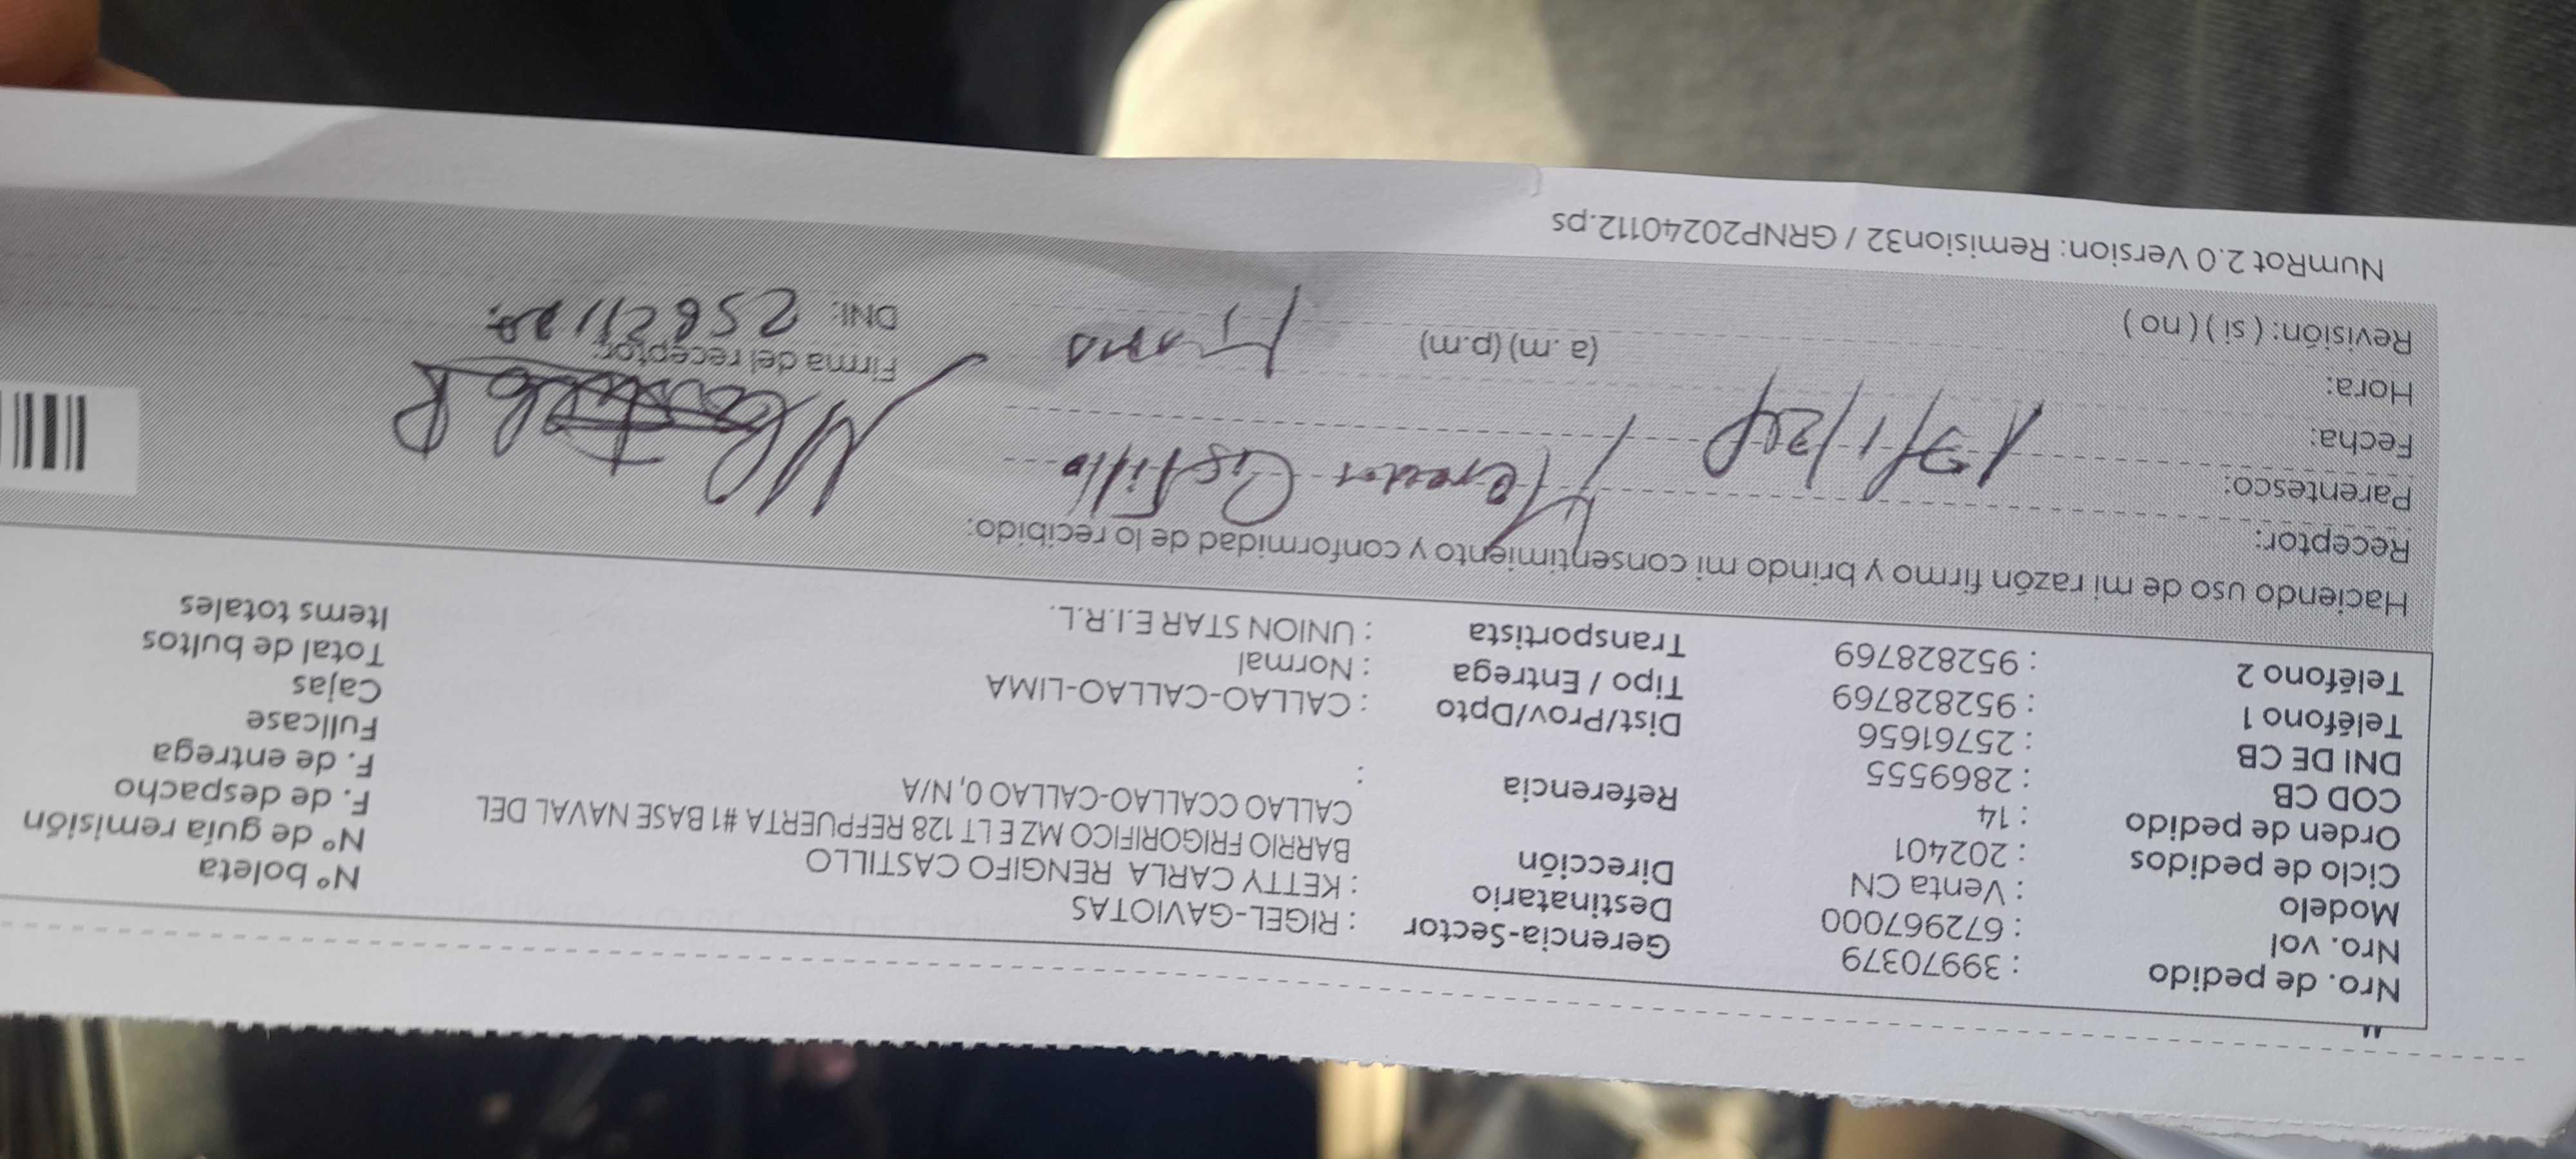 Nro. de pedido : 39970379 Gerencia-Sector : RIGEL-GAVIOTAS Nº boleta
Nro. vol : 672967000 Destinatario : KETTY CARLA RENGIFO CASTILLO Nº de guía remisión
Modelo : Venta CN Dirección BARRIO FRIGORIFICO MZ E LT 128 REFPUERTA #1 BASE NAVAL DEL F. de despacho
Ciclo de pedidos : 202401 CALLAO CCALLAO-CALLAO 0, N/A F. de entrega
Orden de pedido : 14 Referencia : Fullcase
COD CB : 2869555 Dist/Prov/Dpto : CALLAO-CALLAO-LIMA Cajas
DNI DE CB : 25761656 Tipo / Entrega : Normal Total de bultos
Teléfono 1 : 952828769 Transportista : UNION STAR E.I.R.L. Items totales
Teléfono 2 : 952828769
Haciendo uso de mi razón firmo y brindo mi consentimiento y conformidad de lo recibido:
Receptor: Castillo
Parentesco:
Fecha: 17/1/24 Firma del receptor:
Hora: (a .m) (p.m) DNI:
Revisión: ( si ) ( no )
NumRot 2.0 Version: Remision32 / GRNP20240112.ps